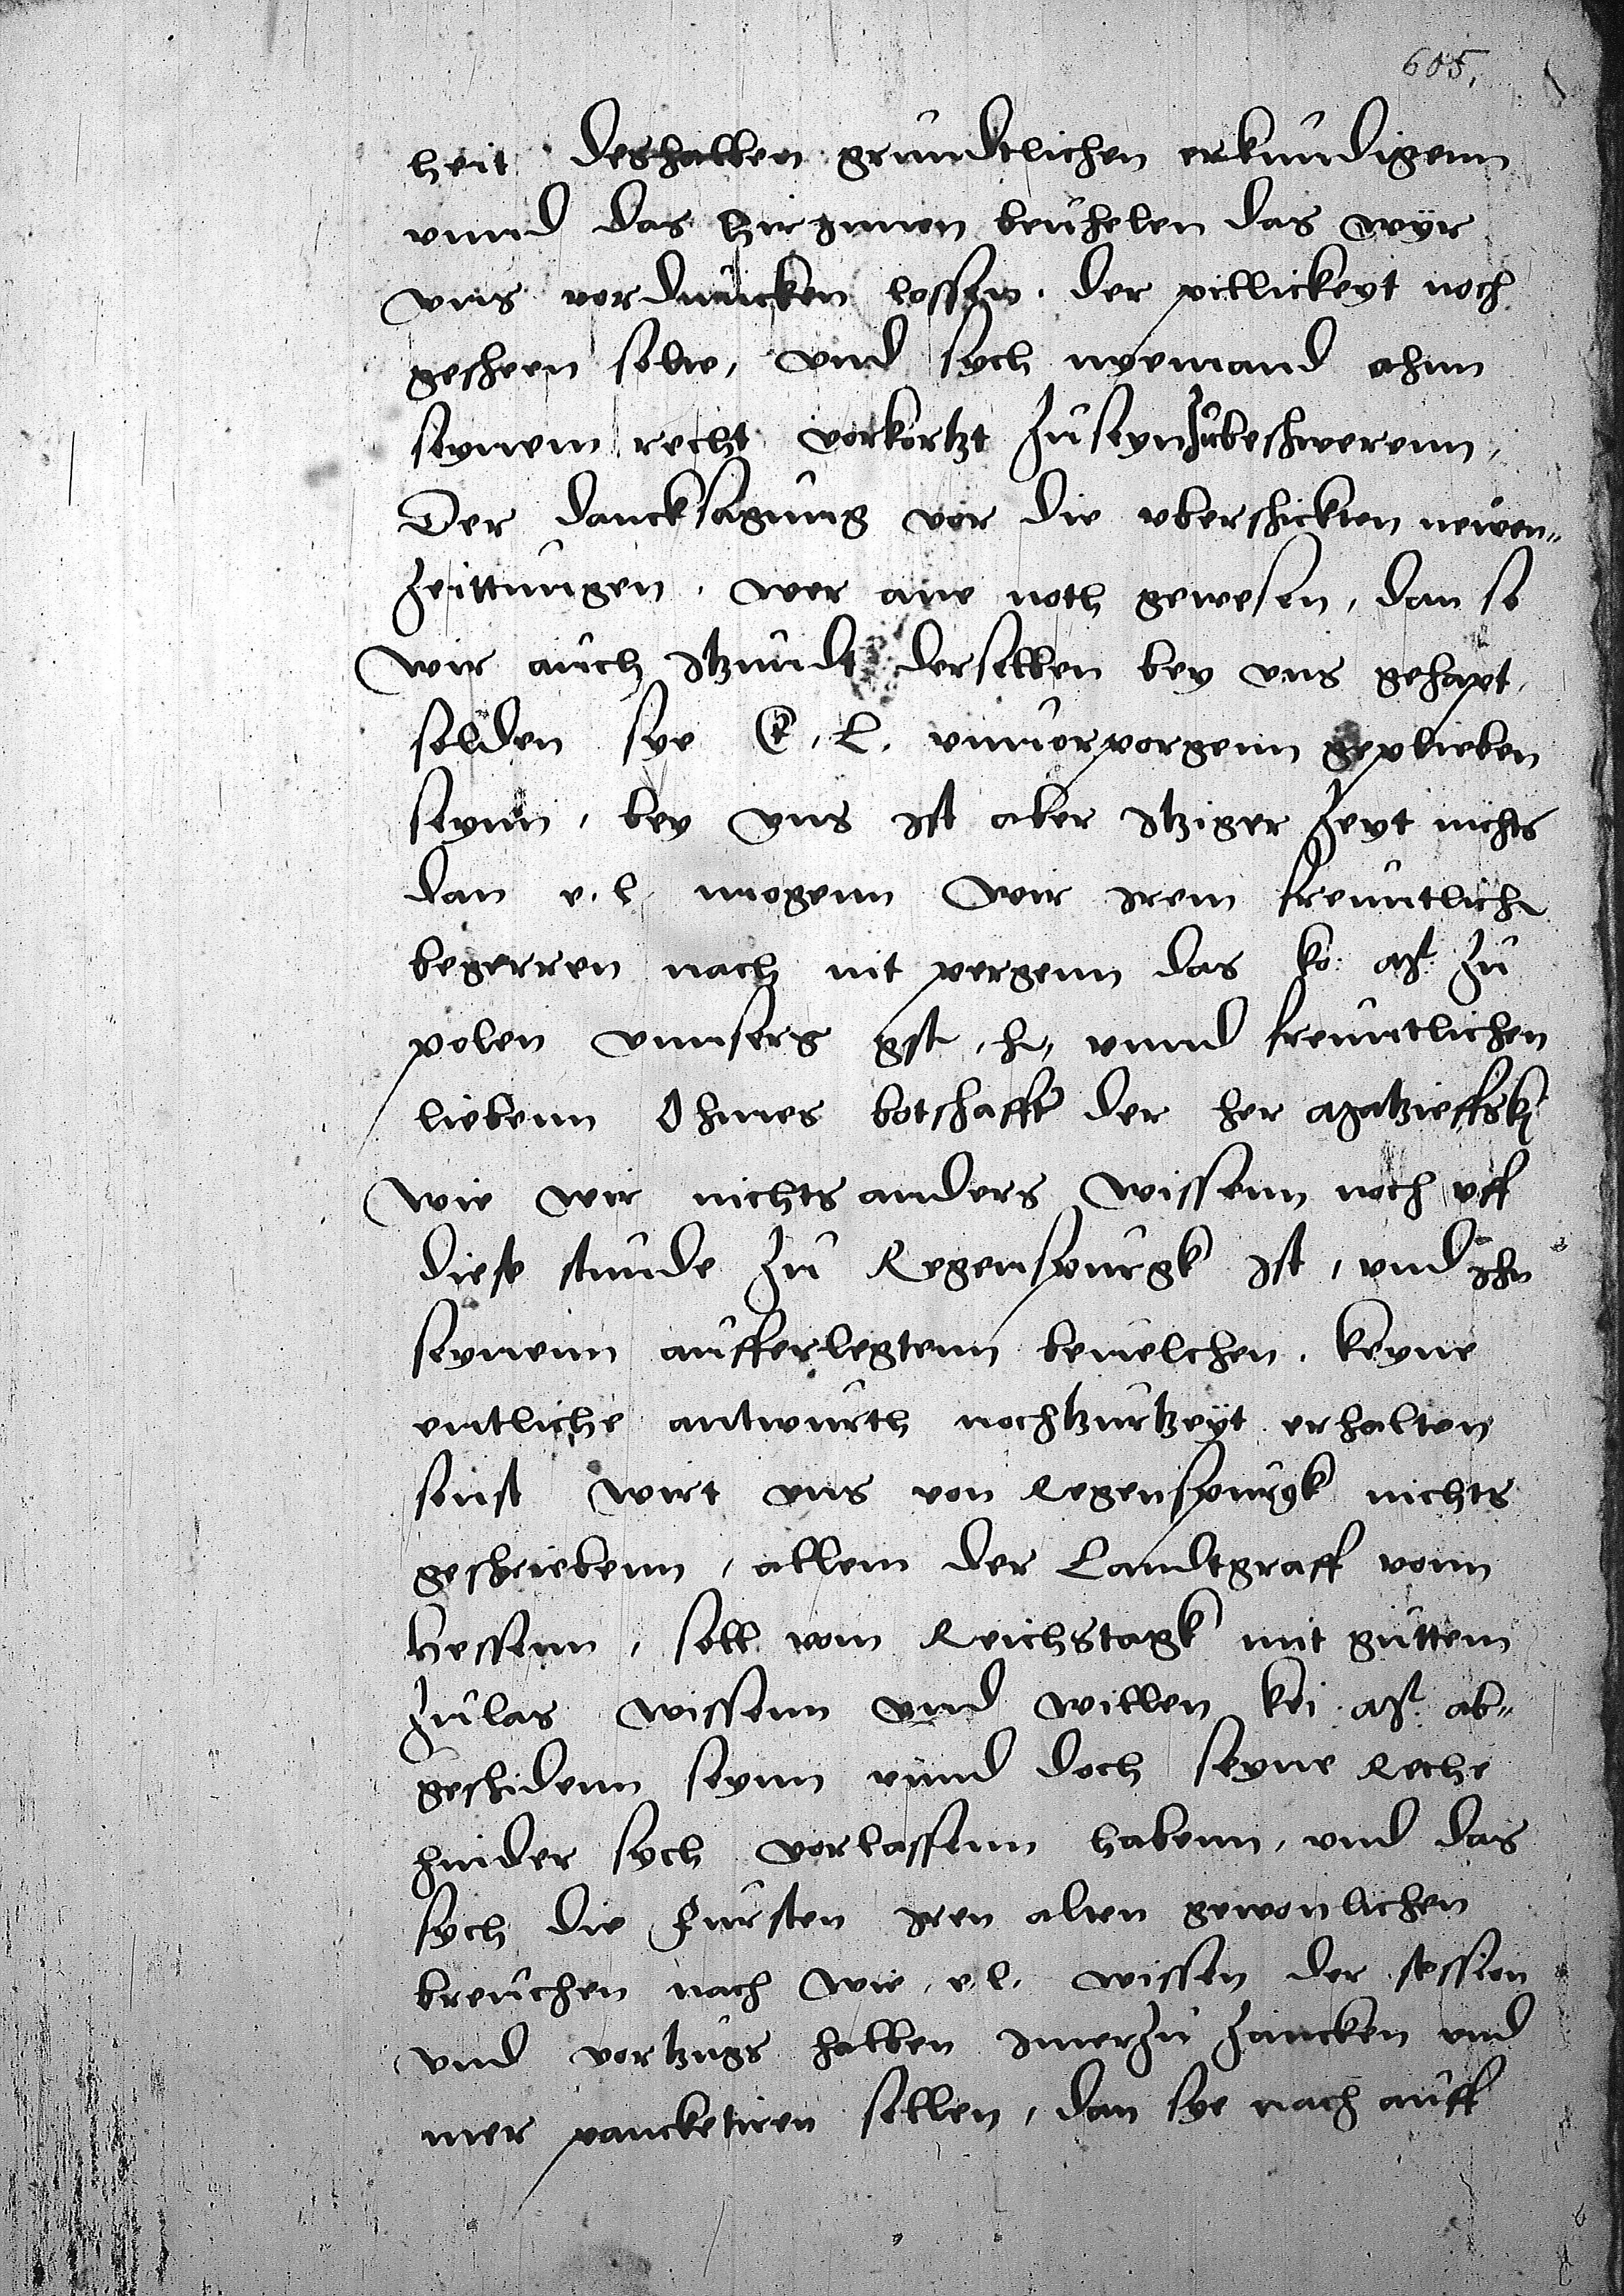 605.
heit deshalben gründtlichen erkündigenn
vnnd das hirJnnen beuhelen das wÿr
vns vordüncken lossen. der pillickeyt noch
gescheen solte, vnd sych nyemand ahnn
seynem recht vorkortzt züseyn zübeschwerenn,
Der dancksagüng vor die vberschickten newen„
zeittüngen. wer ane noth gewesen, dan so
wir aüch Itzündt derselben bey vns gehapt,
solden sye E. L. vnuorporgenn geplieben
seynn, bey vns ist aber itziger zeyt nichts
dan e. l. mogenn wir irem freuntlich
begerren nach nit pergenn das ko: Mt: zü
polen vnnsers gst. h. vnnd freüntlichen
liebenn Ohmes botschafft der her Matzieffsky
wie wir nichts anders wissenn noch vff
diese stünde zü Regenspürgk ist, vnd ihn
seynenn aüfferlegtenn beuelchen. keyne
entliche antwürth nochtzürtzeÿt erhalten
sonst wirt vns von Regenspürgk nichts
geschriebenn, allein der Landtgraff vonn
Hessenn, soll vom Reichstagk mit güttem
zülas wissenn vnd willen kei. Mt. ab„
geschidenn seynn vnnd doch seyne Rethe
hinder sych vorlassenn habenn, vnd das
sych die Fürsten iren alten gewonlichen
breüchen nach wie. e. l. wissen der session
vnd vortzügs halben imerzü zancken vnd
mer pancketiren sollen, dan sye nach aüff